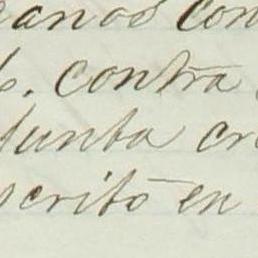 canos con
contra
Junta cr
scrito en